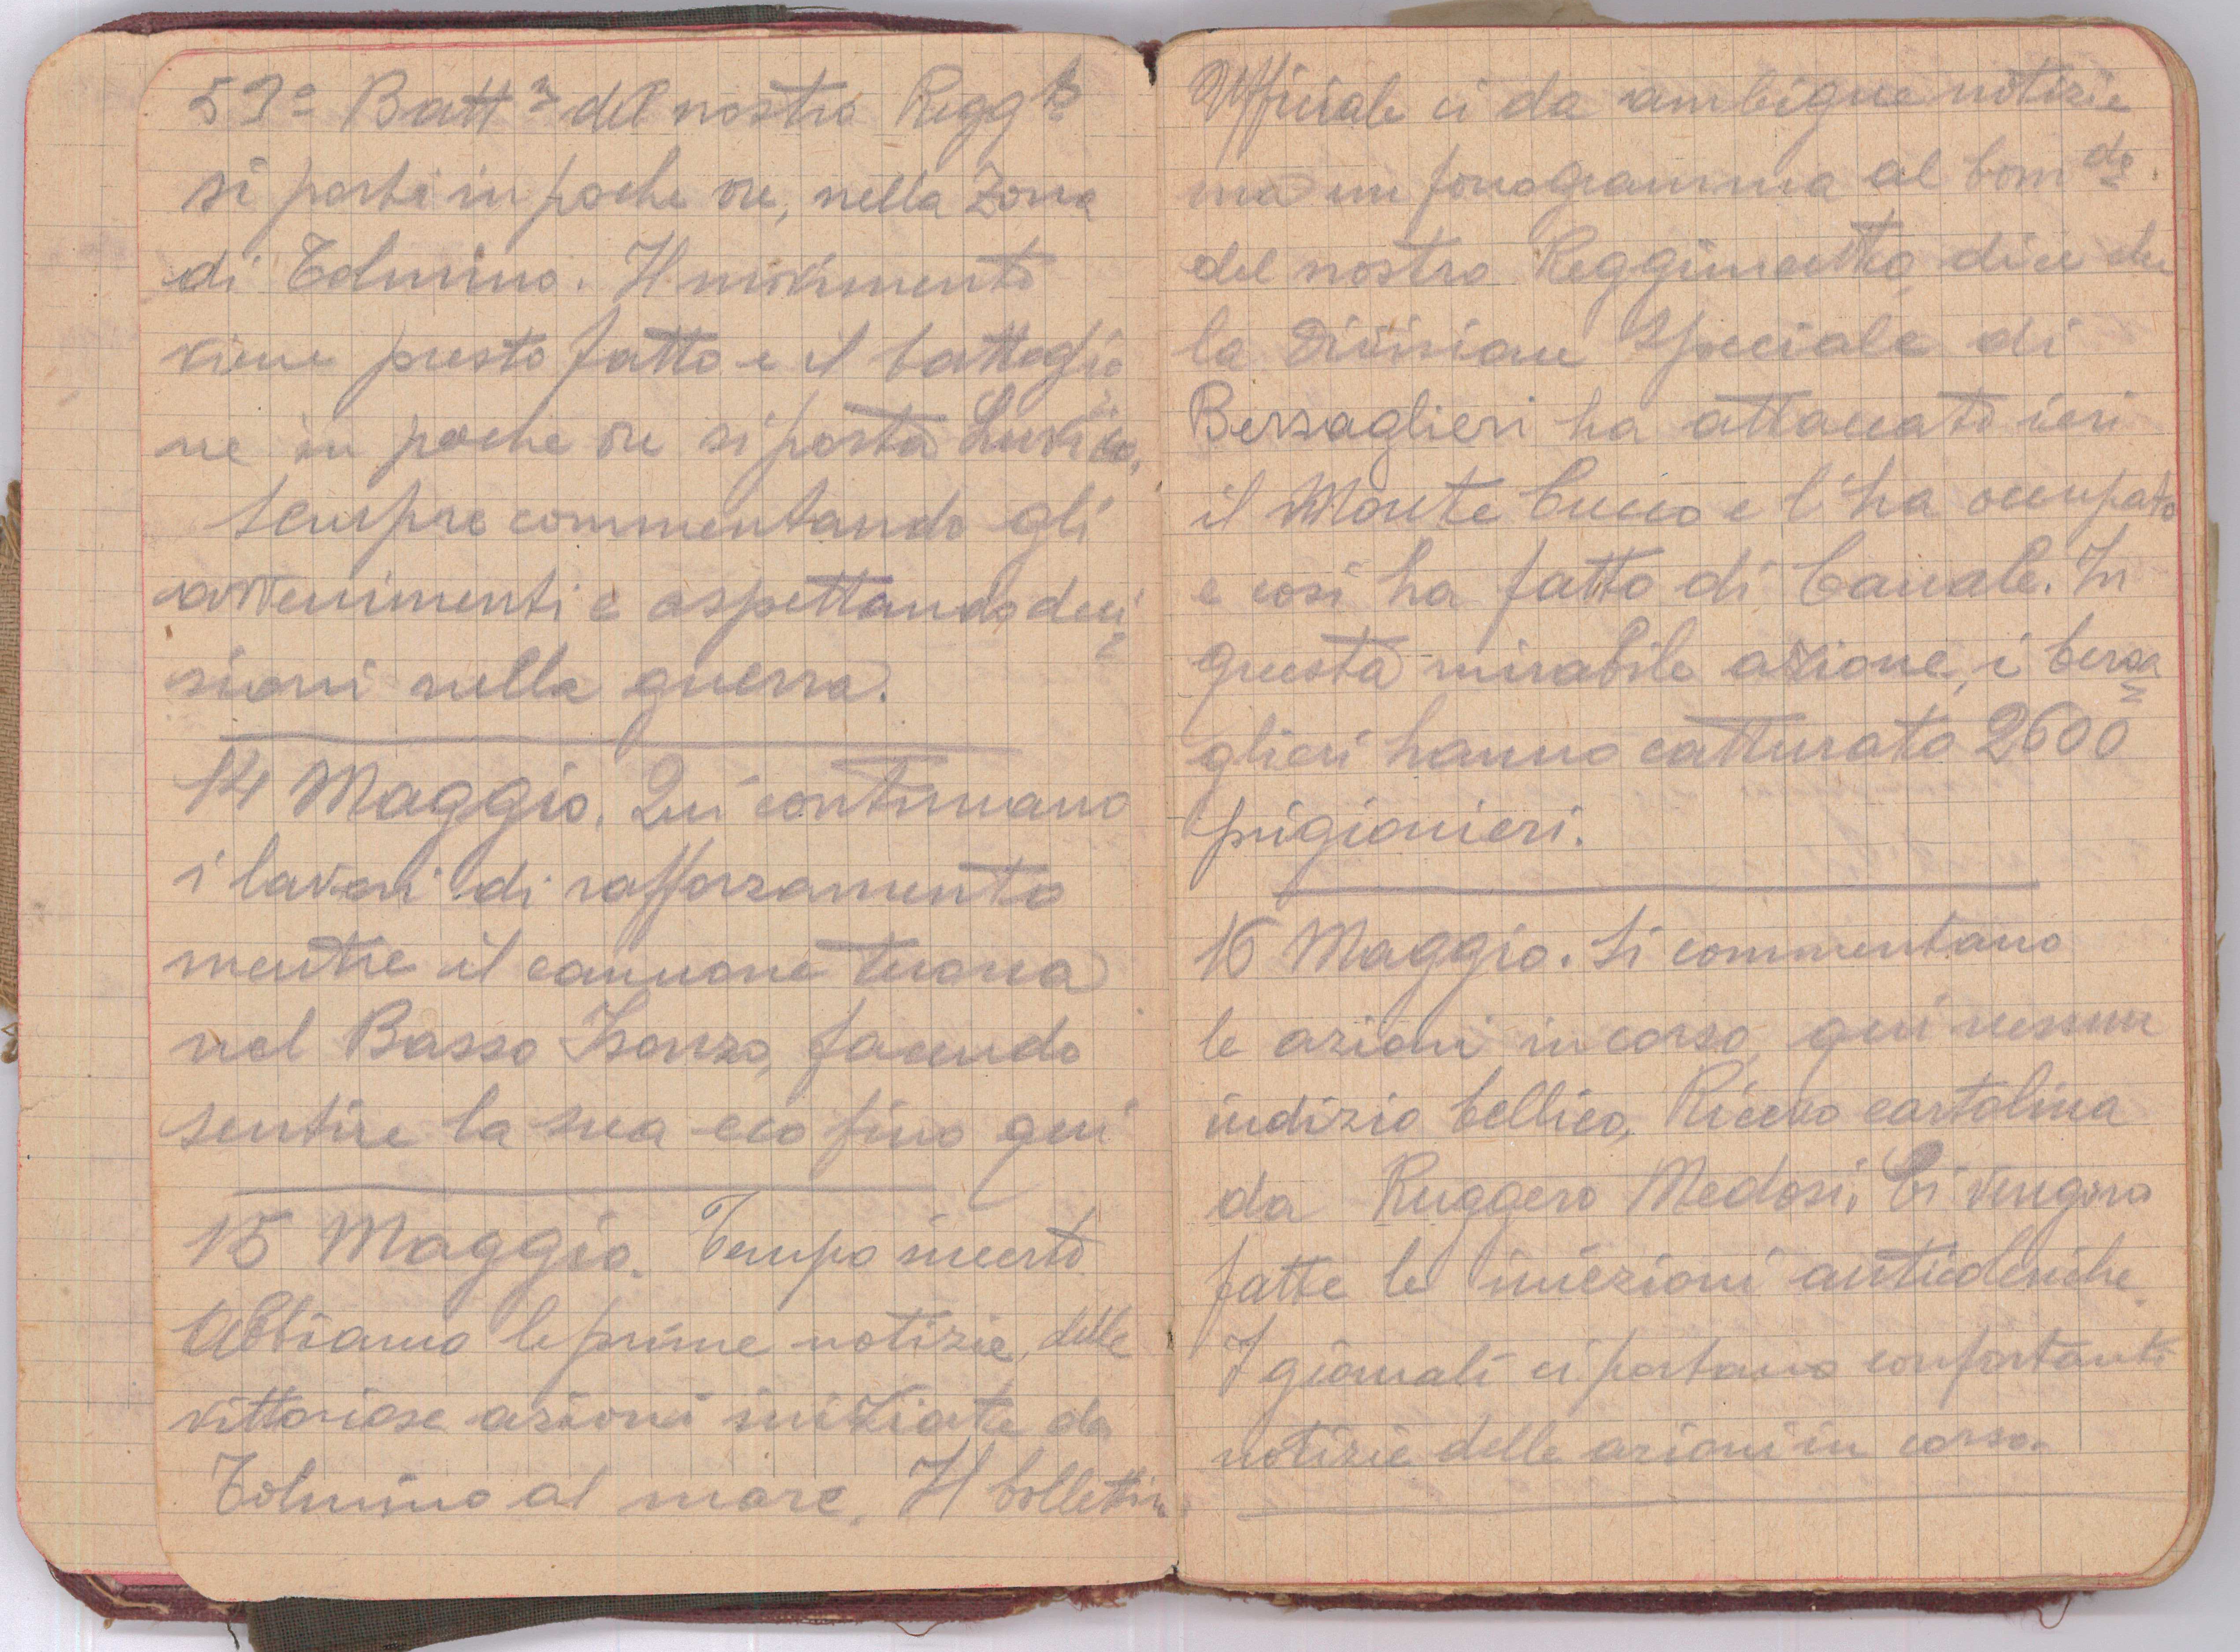 53º Battne del nostro Reggto
si porta in poche ore, nella Zona
di Tolmino. Il movimento
viene presto fatto e il battaglio
ne in poche ore si porta
Sempre commentando gli
avvenimenti e aspettando deci=
sioni nella guerra.
14 Maggio. Qui continuano
i lavori di rafforzamento
mentre il cannone tuona
nel Basso Isonzo, facendo
sentire la sua eco fino qui
15 Maggio. Tempo incerto
Abbiamo le prime notizie, delle
vittoriose azioni iniziate da
Tolmino al mare. Il bollettino
Ufficiale ci da ambigue notizie
ma un fonogramma al Comdo
del nostro Reggimento, dice che
la Divisione Speciale di
Bersaglieri ha attaccato ieri
il Monte Cucco e l'ha occupato
e così ha fatto di Canale. In
questa mirabile azione, i bersa=
glieri hanno catturato 2600
prigionieri.
16 Maggio. Si commentano
le azioni in corso, qui nessun
indizio bellico, Ricevo cartolina
da Ruggero Medosi. Ci vengono
fatte le iniezioni anticoleriche.
I giornali ci portano confortanti
notizie delle azioni in corso.